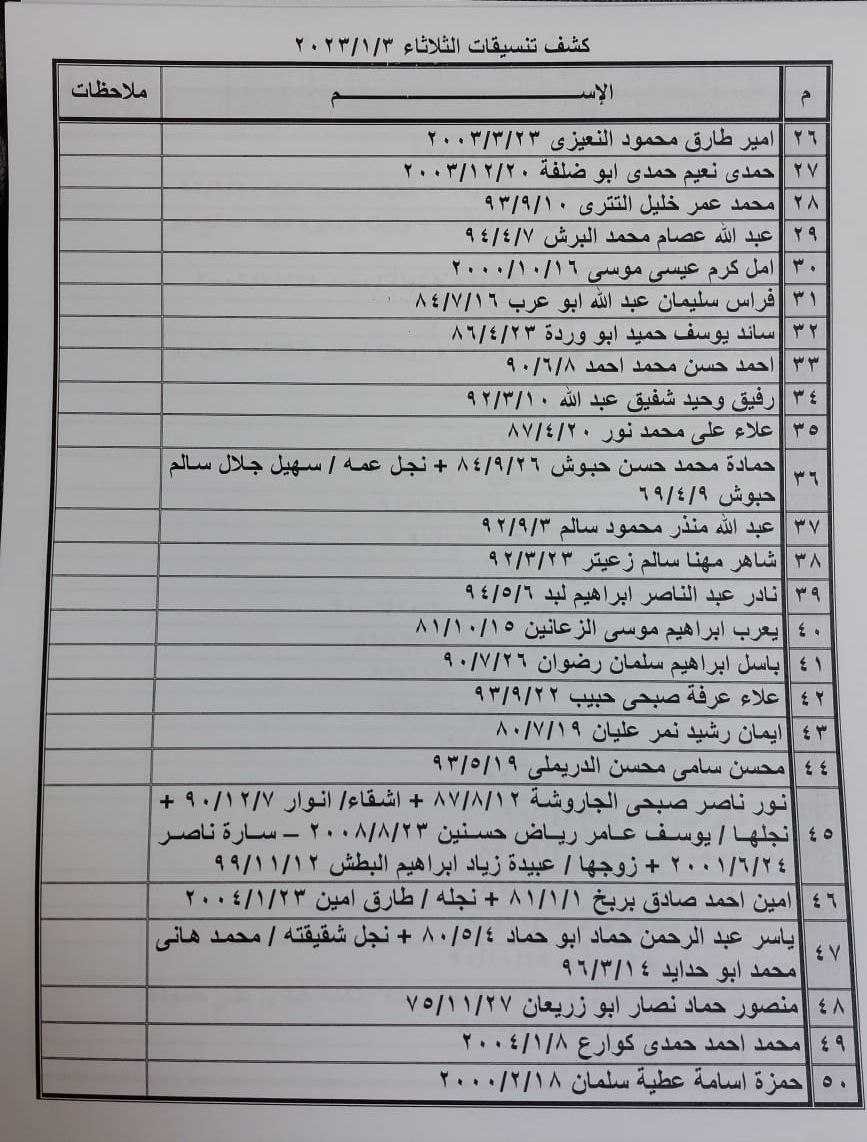 كشف تنسيقات الثلاثاء ٢٠٢٣/١/٣
م الإســـــــم ملاحظات
٢٦ امير طارق محمود النعيزى ٢٠٠٣/٣/٢٣
٢٧ حمدى نعيم حمدى ابو ضلفة ٢٠٠٣/١٢/٢٠
٢٨ محمد عمر خليل التترى ٩٣/٩/١٠
٢٩ عبد الله عصام محمد البرش ٩٤/٤/٧
٣٠ امل كرم عيسى موسى ٢٠٠٠/١٠/١٦
٣١ فراس سليمان عبد الله ابو عرب ٨٤/٧/١٦
٣٢ سائد يوسف حميد ابو وردة ٨٦/٤/٢٣
٣٣ احمد حسن محمد احمد ٩٠/٦/٨
٣٤ رفيق وحيد شفيق عبد الله ٩٢/٣/١٠
٣٥ علاء على محمد نور ٨٧/٤/٢٠
٣٦ حمادة محمد حسن حبوش ٨٤/٩/٢٦ + نجل عمه / سهيل جلال سالم
حبوش ٦٩/٤/٩
٣٧ عبد الله منذر محمود سالم ٩٢/٩/٣
٣٨ شاهر مهنا سالم زعيتر ٩٢/٣/٢٣
٣٩ نادر عبد الناصر ابراهيم لبد ٩٤/٥/٦
٤٠ يعرب ابراهيم موسى الزعانين ٨١/١٠/١٥
٤١ باسل ابراهيم سلمان رضوان ٩٠/٧/٢٦
٤٢ علاء عرفة صبحى حبيب ٩٣/٩/٢٢
٤٣ ايمان رشيد نمر عليان ٨٠/٧/١٩
٤٤ محسن سامى محسن الدريملى ٩٣/٥/١٩
٤٥ نور ناصر صبحى الجاروشة ٨٧/٨/١٢ + اشقاء/ انوار ٩٠/١٢/٧ +
نجلها / يوسف عامر رياض حسنين ٢٠٠٨/٨/٢٣ – سارة ناصر
٢٠٠١/٦/٢٤ + زوجها / عبيدة زياد ابراهيم البطش ٩٩/١١/١٢
٤٦ امين احمد صادق بربخ ٨١/١/١ + نجله / طارق امين ٢٠٠٤/١/٢٣
٤٧ ياسر عبد الرحمن حماد ابو حماد ٨٠/٥/٤ + نجل شقيقته / محمد هانى
محمد ابو حدايد ٩٦/٣/١٤
٤٨ منصور حماد نصار ابو زريعان ٧٥/١١/٢٧
٤٩ محمد احمد حمدى كوارع ٢٠٠٤/١/٨
٥٠ حمزة اسامة عطية سلمان ٢٠٠٠/٢/١٨